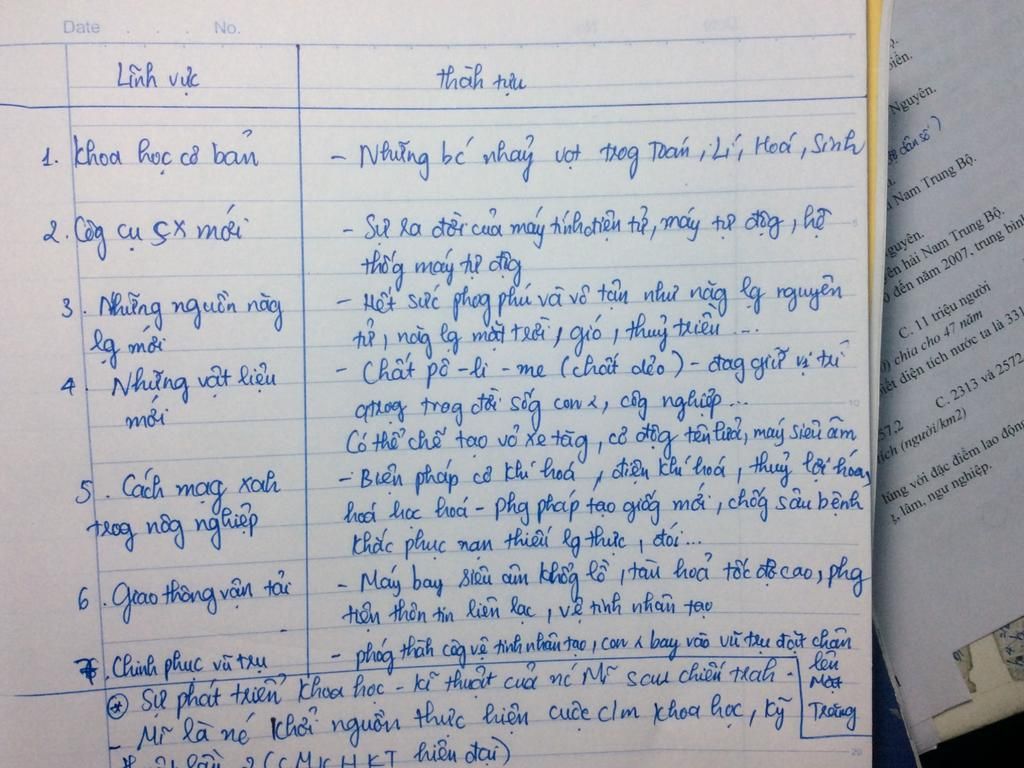 Date . . . No.
Lĩnh vực thành tựu
1. Khoa học cơ bản - Những bc nhảy vọt trog Toán, Lí, Hoá, Sinh
2. Côg cụ sx mới - Sự ra đời của máy tính điện tử, máy tự độg, hệ
thốg máy tự độg
3. Những nguồn năg - Hết sức phog phú và vô tận như năg lg nguyên
lg mới tử, năg lg mặt trời, gió, thuỷ triều ...
4. Những vật liệu - Chất pô-li-me (chất dẻo) - đag giữ vị trí
mới qtrog trog đời sốg con 2, côg nghiệp...
Có thể chế tạo vỏ xe tăg, cơ độg tên lửa, máy siêu âm
5. Cách mạg xah - Biện pháp cơ khí hoá, điện khí hoá, thuỷ lợi hóa,
trog nôg nghiệp hoá học hoá - phg pháp tạo giốg mới, chốg sâu bệnh
khắc phục nạn thiếu lg thực, đói...
6. Giao thông vận tải - Máy bay siêu âm khổg lồ, tàu hoả tốc độ cao, phg
tiện thôn tin liên lạc, vệ tinh nhân tạo
7. Chinh phục vũ trụ - phóg thàh côg vệ tinh nhân tạo, con 2 bay vào vũ trụ đặt chân
lên
Mặt
Trăng
* Sự phát triển khoa học - kĩ thuật của nc Mĩ sau chiến trah -
- Mĩ là nc khởi nguồn thực hiện cuộc c/m khoa học, kỹ
lần 2 (CMKHKT hiện đại)
Nguyên.
dân số")
Nam Trung Bộ.
guyên.
ên hải Nam Trung Bộ.
đến năm 2007, trung bình
C. 11 triệu người
chia cho 47 năm
iết diện tích nước ta là 331
C. 2313 và 2572
57,2
tích (người/km2)
lùng với đặc điểm lao động
lâm, ngư nghiệp.